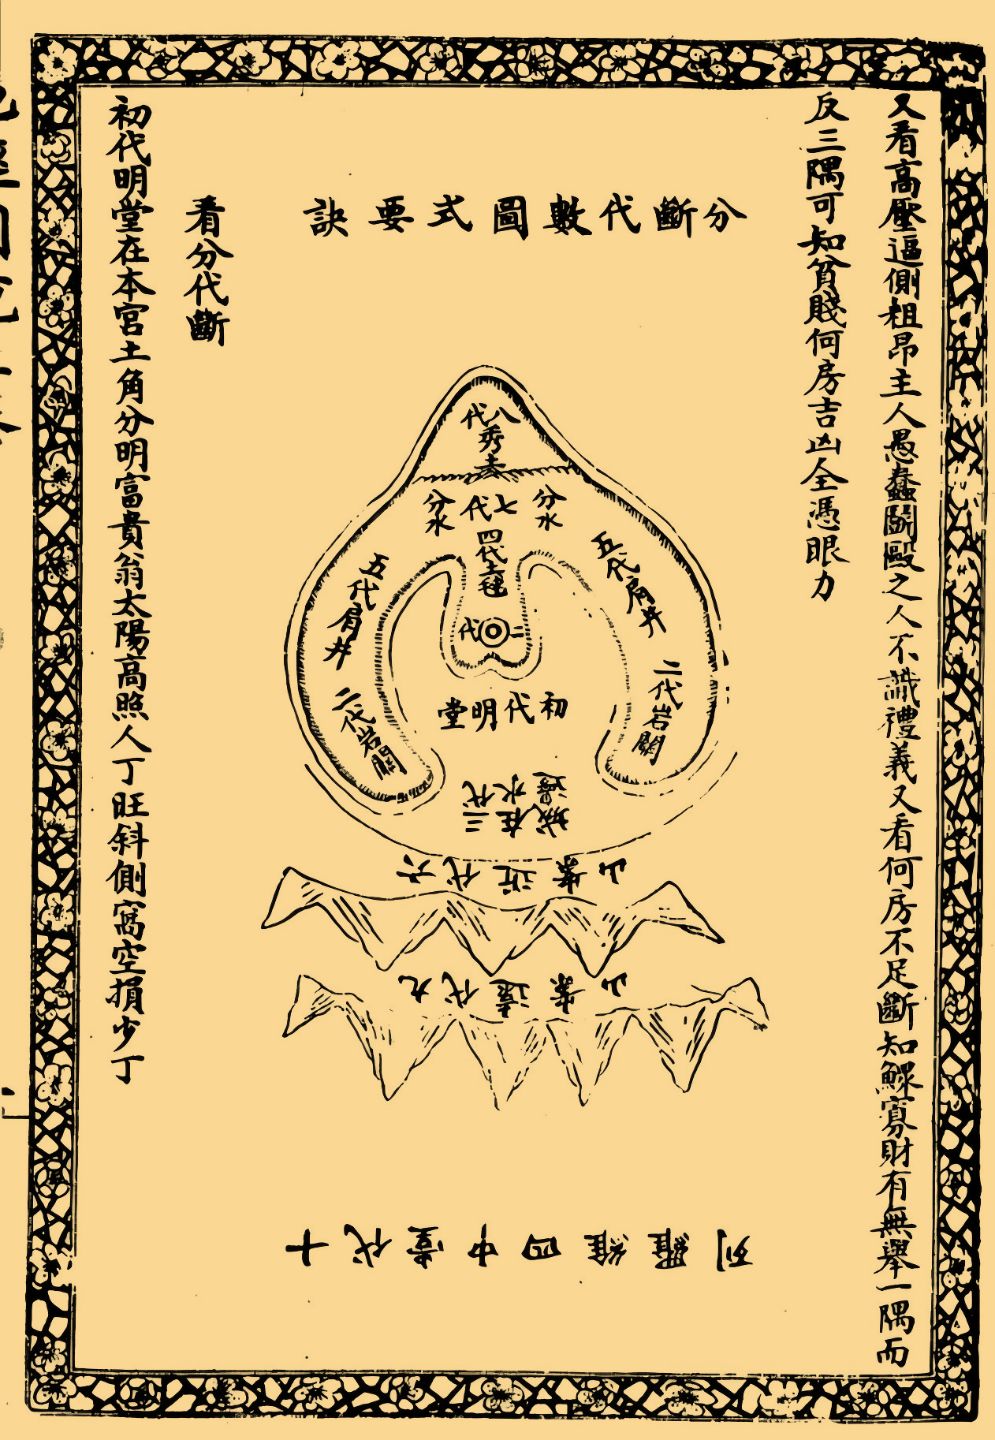 又看高壓逼側粗昂主人愚蠢鬪毆之人不識禮義又看何房不足斷知鰥寡財有無舉一隅而
反三隅可知貧賤何房吉凶全憑眼力
分斷代數圖式要訣
八代秀
七代
分水
分水
四代毬
五代肩井
五代肩井
二代
二代岩關
二代岩關
初代明堂
三代在水城邊
六代近案山
九代遠案山
十代堂中四維羅列
看分代斷
初代明堂在本宮土角分明富貴翁太陽高照人丁旺斜側窩空損少丁